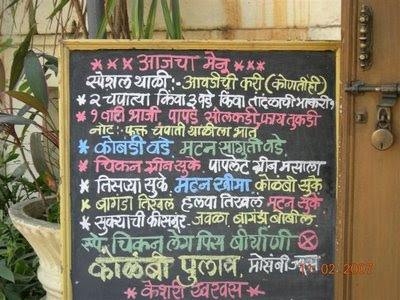 *** आजचा मेनू ***
स्पेशल थाळी :- आवडीची करी (कोणतीही)
* २ चपात्या किंवा ३ वडे किंवा तांदळाची भाकरी
* १ वाटी भाजी पापड सोलकडी, फ्राय तुकडी
नोट :- फक्त चपाती थाळीला भात
* कोंबडी वडे, मटन सागुती वडे
* चिकन ग्रीन सुके पापलेट ग्रीन मसाला
* तिसऱ्या सुके, मटन खीमा कोळंबी सुके
* बांगडा तिखलं हलवा तिखलं मटन सुके
* सुक्याची किसमूर - जवळा, बांगडा, बोंबील
स्पे. चिकन लेग पिस बीर्याणी
कोळंबी पुलाव, मोसंबी ज्यूस
* केशरी खरवस *
11 02 2007